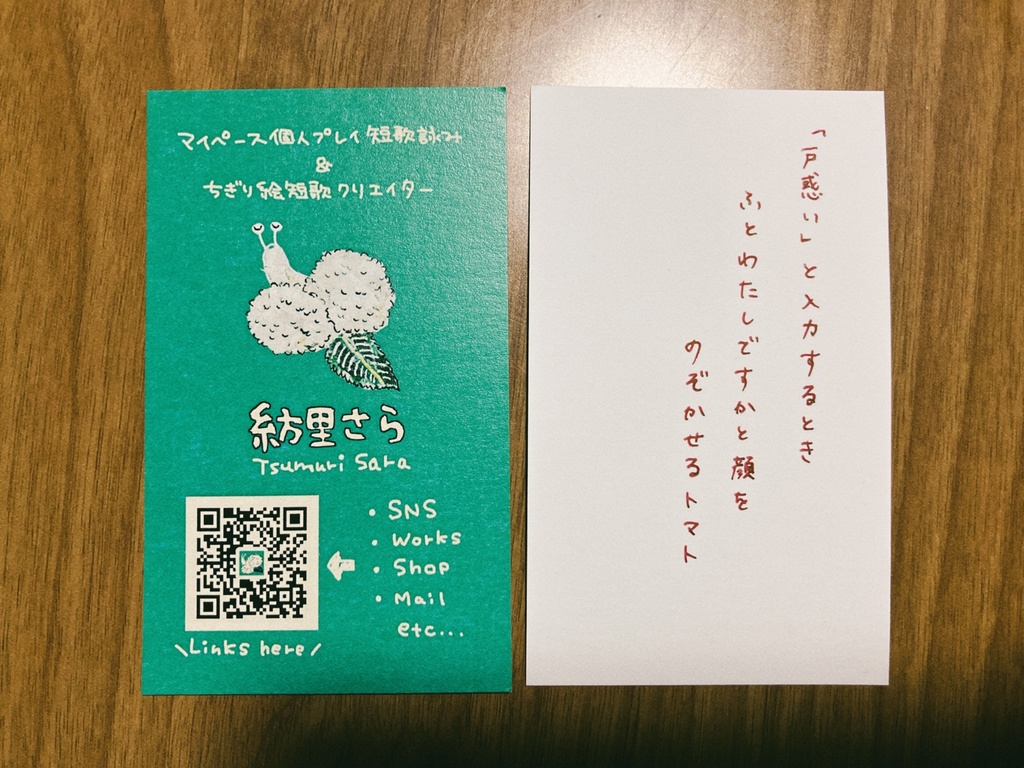 マイペース個人プレイ短歌詠み
&
ちぎり絵短歌クリエイター
紡里さら
Tsumuri Sara
• SNS
• Works
• Shop
• Mail
etc...
\Links here/
「戸惑い」と入力するとき
ふとわたしですかと顔を
のぞかせるトマト